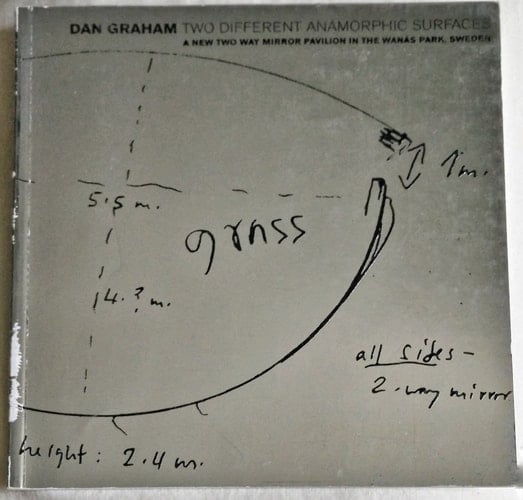 DAN GRAHAM TWO DIFFERENT ANAMORPHIC SURFACES
A NEW TWO WAY MIRROR PAVILION IN THE WANÅS PARK, SWEDEN
1m.
5.5 m.
grass
4.? m.
all sides -
2-way mirror
height: 2.4 m.